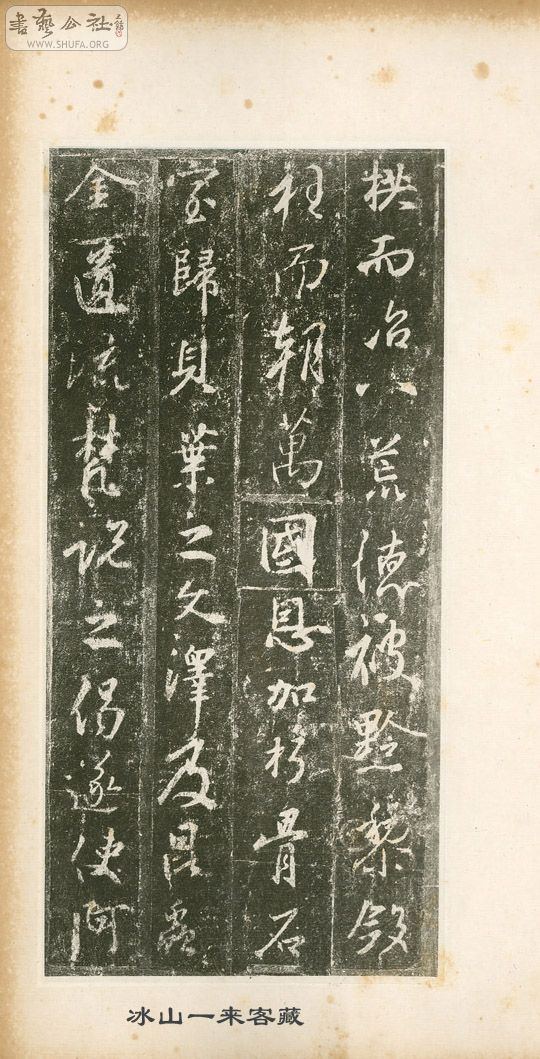 書藝公社
WWW.SHUFA.ORG
拱而冶八荒德被黔黎斂
衽而朝萬國恩加朽骨石
室歸貝葉之文澤及昆蟲
金匱流梵說之偈遂使阿
冰山一来客藏